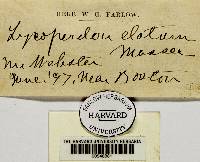 HERB. W. G. FARLOW.
Lycoperdon elatum
Massee
Mr Webster
June. '97. Near Boston
FARLOW HERBARIUM
HARVARD
UNIVERSITY
THE HARVARD UNIVERSITY HERBARIA